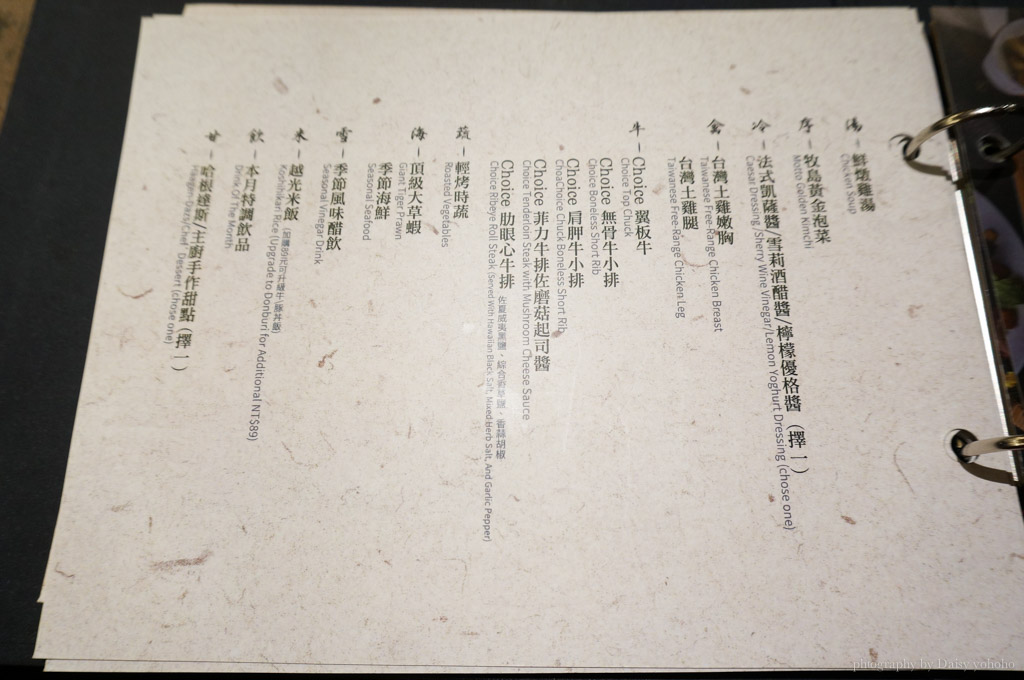 湯 – 鮮燉雞湯
Chicken Soup
序 – 牧島黃金泡菜
Motto Golden Kimchi
冷 – 法式凱薩醬/雪莉酒醋醬/檸檬優格醬 (擇一)
Caesar Dressing /Sherry Wine Vinegar/Lemon Yoghurt Dressing (chose one)
禽 – 台灣土雞嫩胸
Taiwanese Free-Range Chicken Breast
台灣土雞腿
Taiwanese Free-Range Chicken Leg
牛 – Choice 翼板牛
Choice Top Chuck
Choice 無骨牛小排
Choice Boneless Short Rib
Choice 肩胛牛小排
ChoaChoice Chuck Boneless Short Rib
Choice 菲力牛排佐磨菇起司醬
Choice Tenderloin Steak with Mushroom Cheese Sauce
Choice 肋眼心牛排 佐夏威夷黑鹽、綜合香草鹽、香蒜胡椒
Choice Ribeye Roll Steak (Served with Hawaiian Black Salt, Mixed Herb Salt, And Garlic Pepper)
蔬 – 輕烤時蔬
Roasted Vegetables
海 – 頂級大草蝦
Giant Tiger Prawn
季節海鮮
Seasonal Seafood
雪 – 季節風味醋飲
Seasonal Vinegar Drink
米 – 越光米飯 (加購89元可升級牛/豚丼飯)
Koshihikari Rice (Upgrade to Donburi for Additional NT$89)
飲 – 本月特調飲品
Drink Of The Month
甘 – 哈根達斯/主廚手作甜點 (擇一)
Haagen-Dazs/Chef Dessert (chose one)
photography by Daisy yohoho